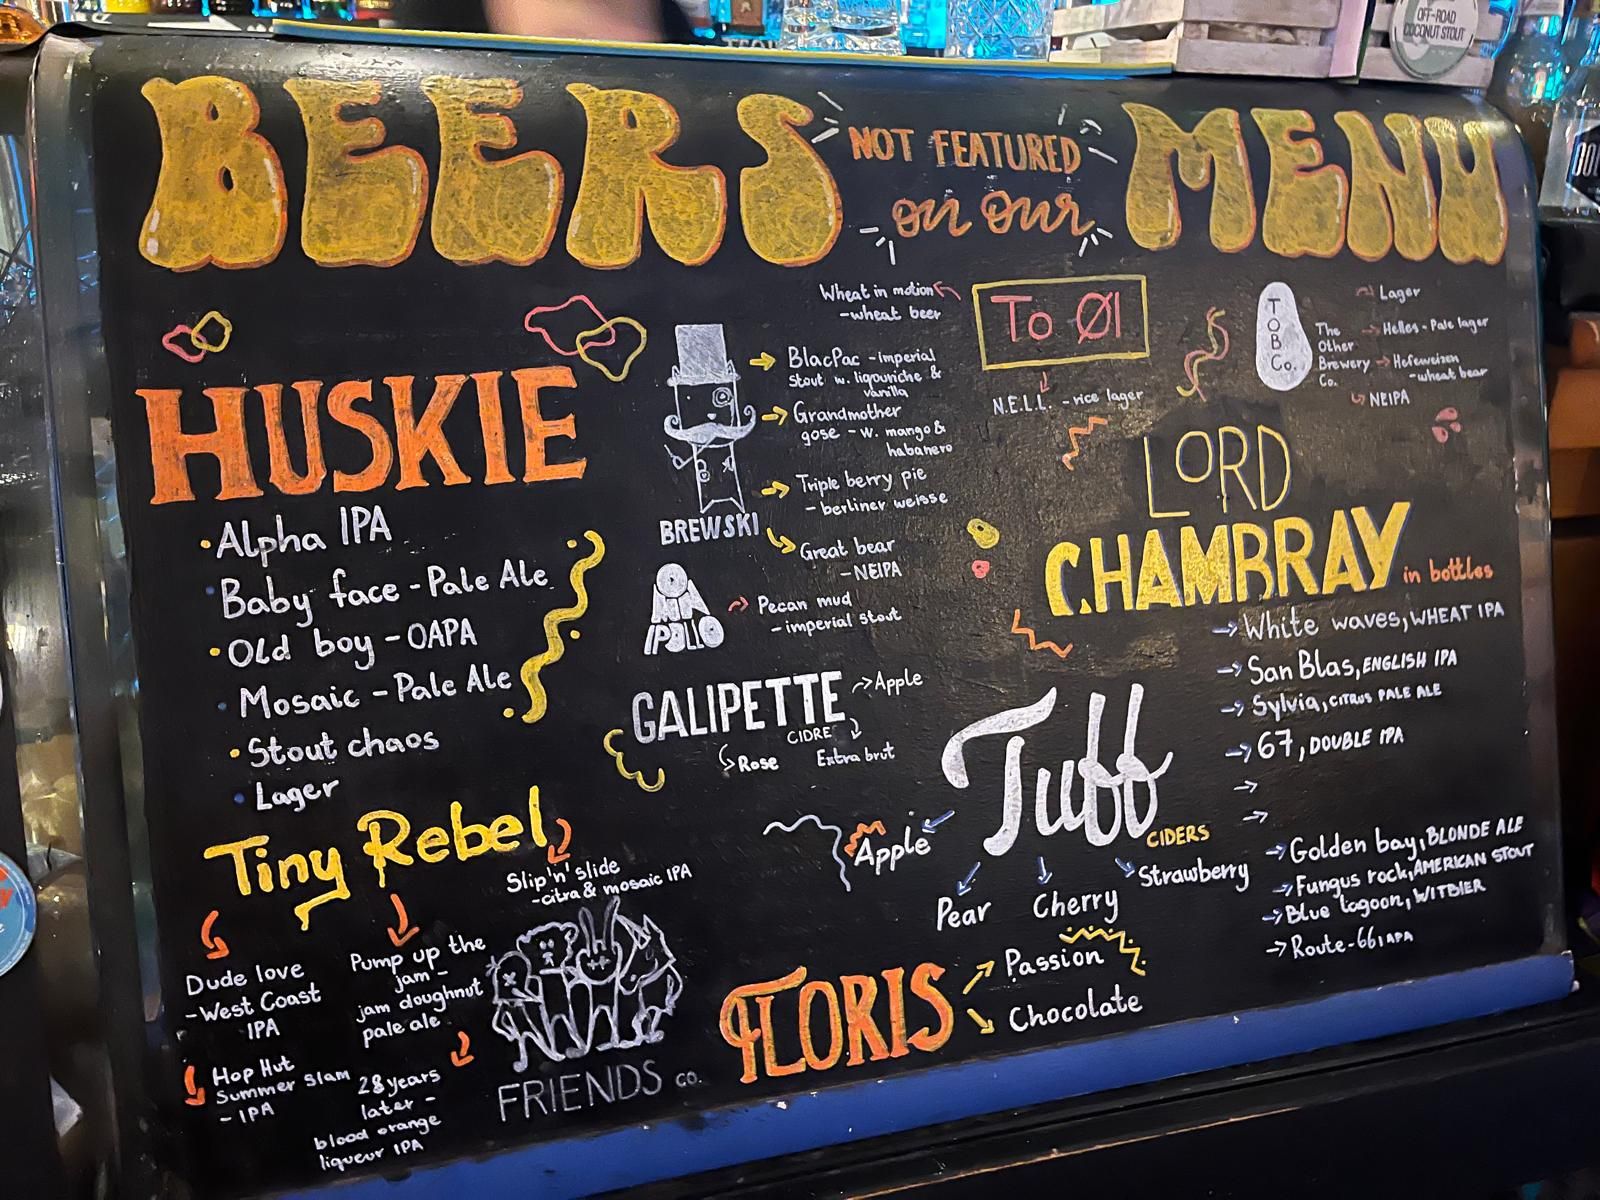 OFF-ROAD
COCONUT STOUT
BEERS
NOT FEATURED
on our
MENU
HUSKIE
Alpha IPA
Baby face - Pale Ale
Old boy - OAPA
Mosaic - Pale Ale
Stout chaos
Lager
Tiny Rebel
Slip'n'slide
- citra & mosaic IPA
Dude love
- West Coast
IPA
Pump up the
jam -
jam doughnut
pale ale
Hop Hut
Summer Slam
- IPA
28 years
later -
blood orange
liqueur IPA
FRIENDS co.
BREWSKI
BlacPac - Imperial
Stout w. liqouriche &
vanilla
Grandmother
gose - w. mango &
habanero
Triple berry pie
- berliner weisse
Great bear
- NEIPA
OMNIPOLLO
Pecan mud
- imperial stout
GALIPETTE
CIDRE
Apple
Rose
Extra brut
To Øl
Wheat in motion
- wheat beer
N.E.L.L. - rice lager
TOB Co.
The
Other
Brewery
Co.
Lager
Helles - Pale lager
Hefeweizen
- wheat bear
NEIPA
LORD
CHAMBRAY
in bottles
White waves, WHEAT IPA
San Blas, ENGLISH IPA
Sylvia, CITRUS PALE ALE
67, DOUBLE IPA
Golden bay, BLONDE ALE
Fungus rock, AMERICAN STOUT
Blue lagoon, WITBIER
Route-66, APA
Tuff
CIDERS
Apple
Pear
Cherry
Strawberry
FLORIS
Passion
Chocolate